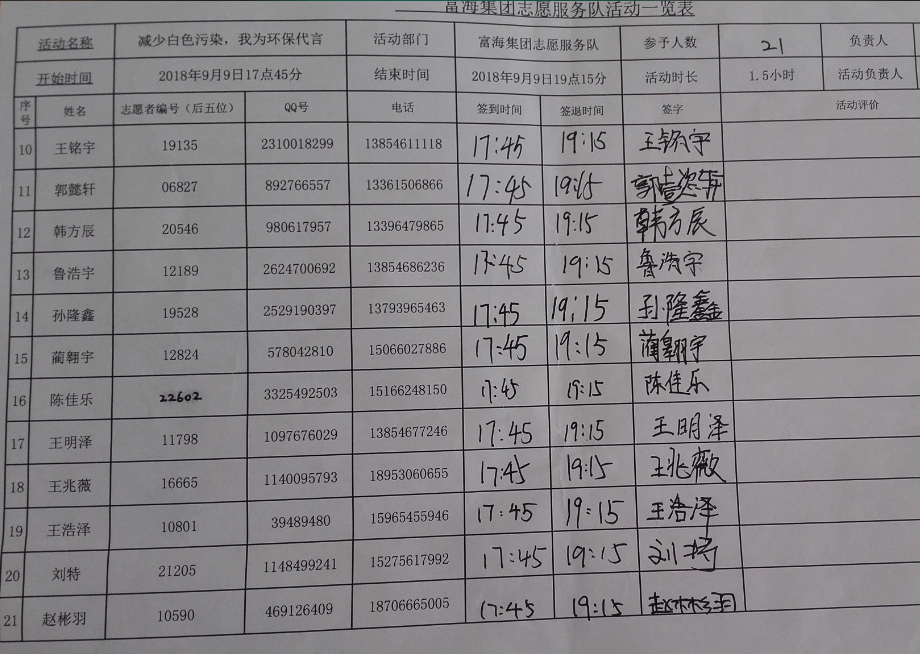 富海集团志愿服务队活动一览表
活动名称 减少白色污染，我为环保代言 活动部门 富海集团志愿服务队 参予人数 21 负责人
开始时间 2018年9月9日17点45分 结束时间 2018年9月9日19点15分 活动时长 1.5小时 活动负责人
序号 姓名 志愿者编号（后五位） QQ号 电话 签到时间 签退时间 签字 活动评价
10 王铭宇 19135 2310018299 13854611118 17:45 19:15 王铭宇
11 郭懿轩 06827 892766557 13361506866 17:45 19:15 郭懿轩
12 韩方辰 20546 980617957 13396479865 17:45 19:15 韩方辰
13 鲁浩宇 12189 2624700692 13854686236 17:45 19:15 鲁浩宇
14 孙隆鑫 19528 2529190397 13793965463 17:45 19:15 孙隆鑫
15 蔺翱宇 12824 578042810 15066027886 17:45 19:15 蔺翱宇
16 陈佳乐 22602 3325492503 15166248150 17:45 19:15 陈佳乐
17 王明泽 11798 1097676029 13854677246 17:45 19:15 王明泽
18 王兆薇 16665 1140095793 18953060655 17:45 19:15 王兆薇
19 王浩泽 10801 39489480 15965455946 17:45 19:15 王浩泽
20 刘特 21205 1148499241 15275617992 17:45 19:15 刘特
21 赵彬羽 10590 469126409 18706665005 17:45 19:15 赵彬羽